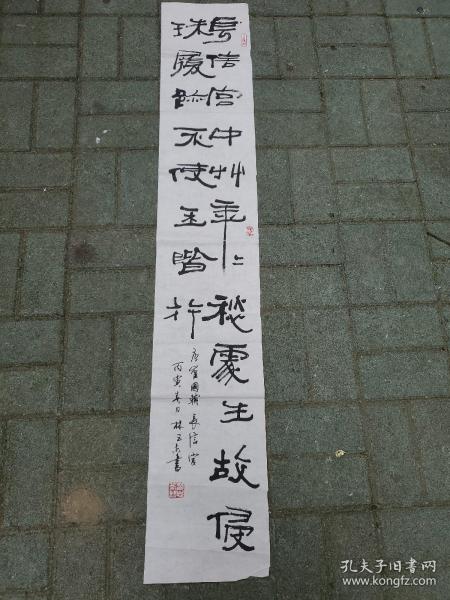 長信宮中艸年〻愁處生故侵
珠履跡不使玉階行
唐崔國輔長信宮
丙寅春日林書
孔夫子旧书网
www.kongfz.com